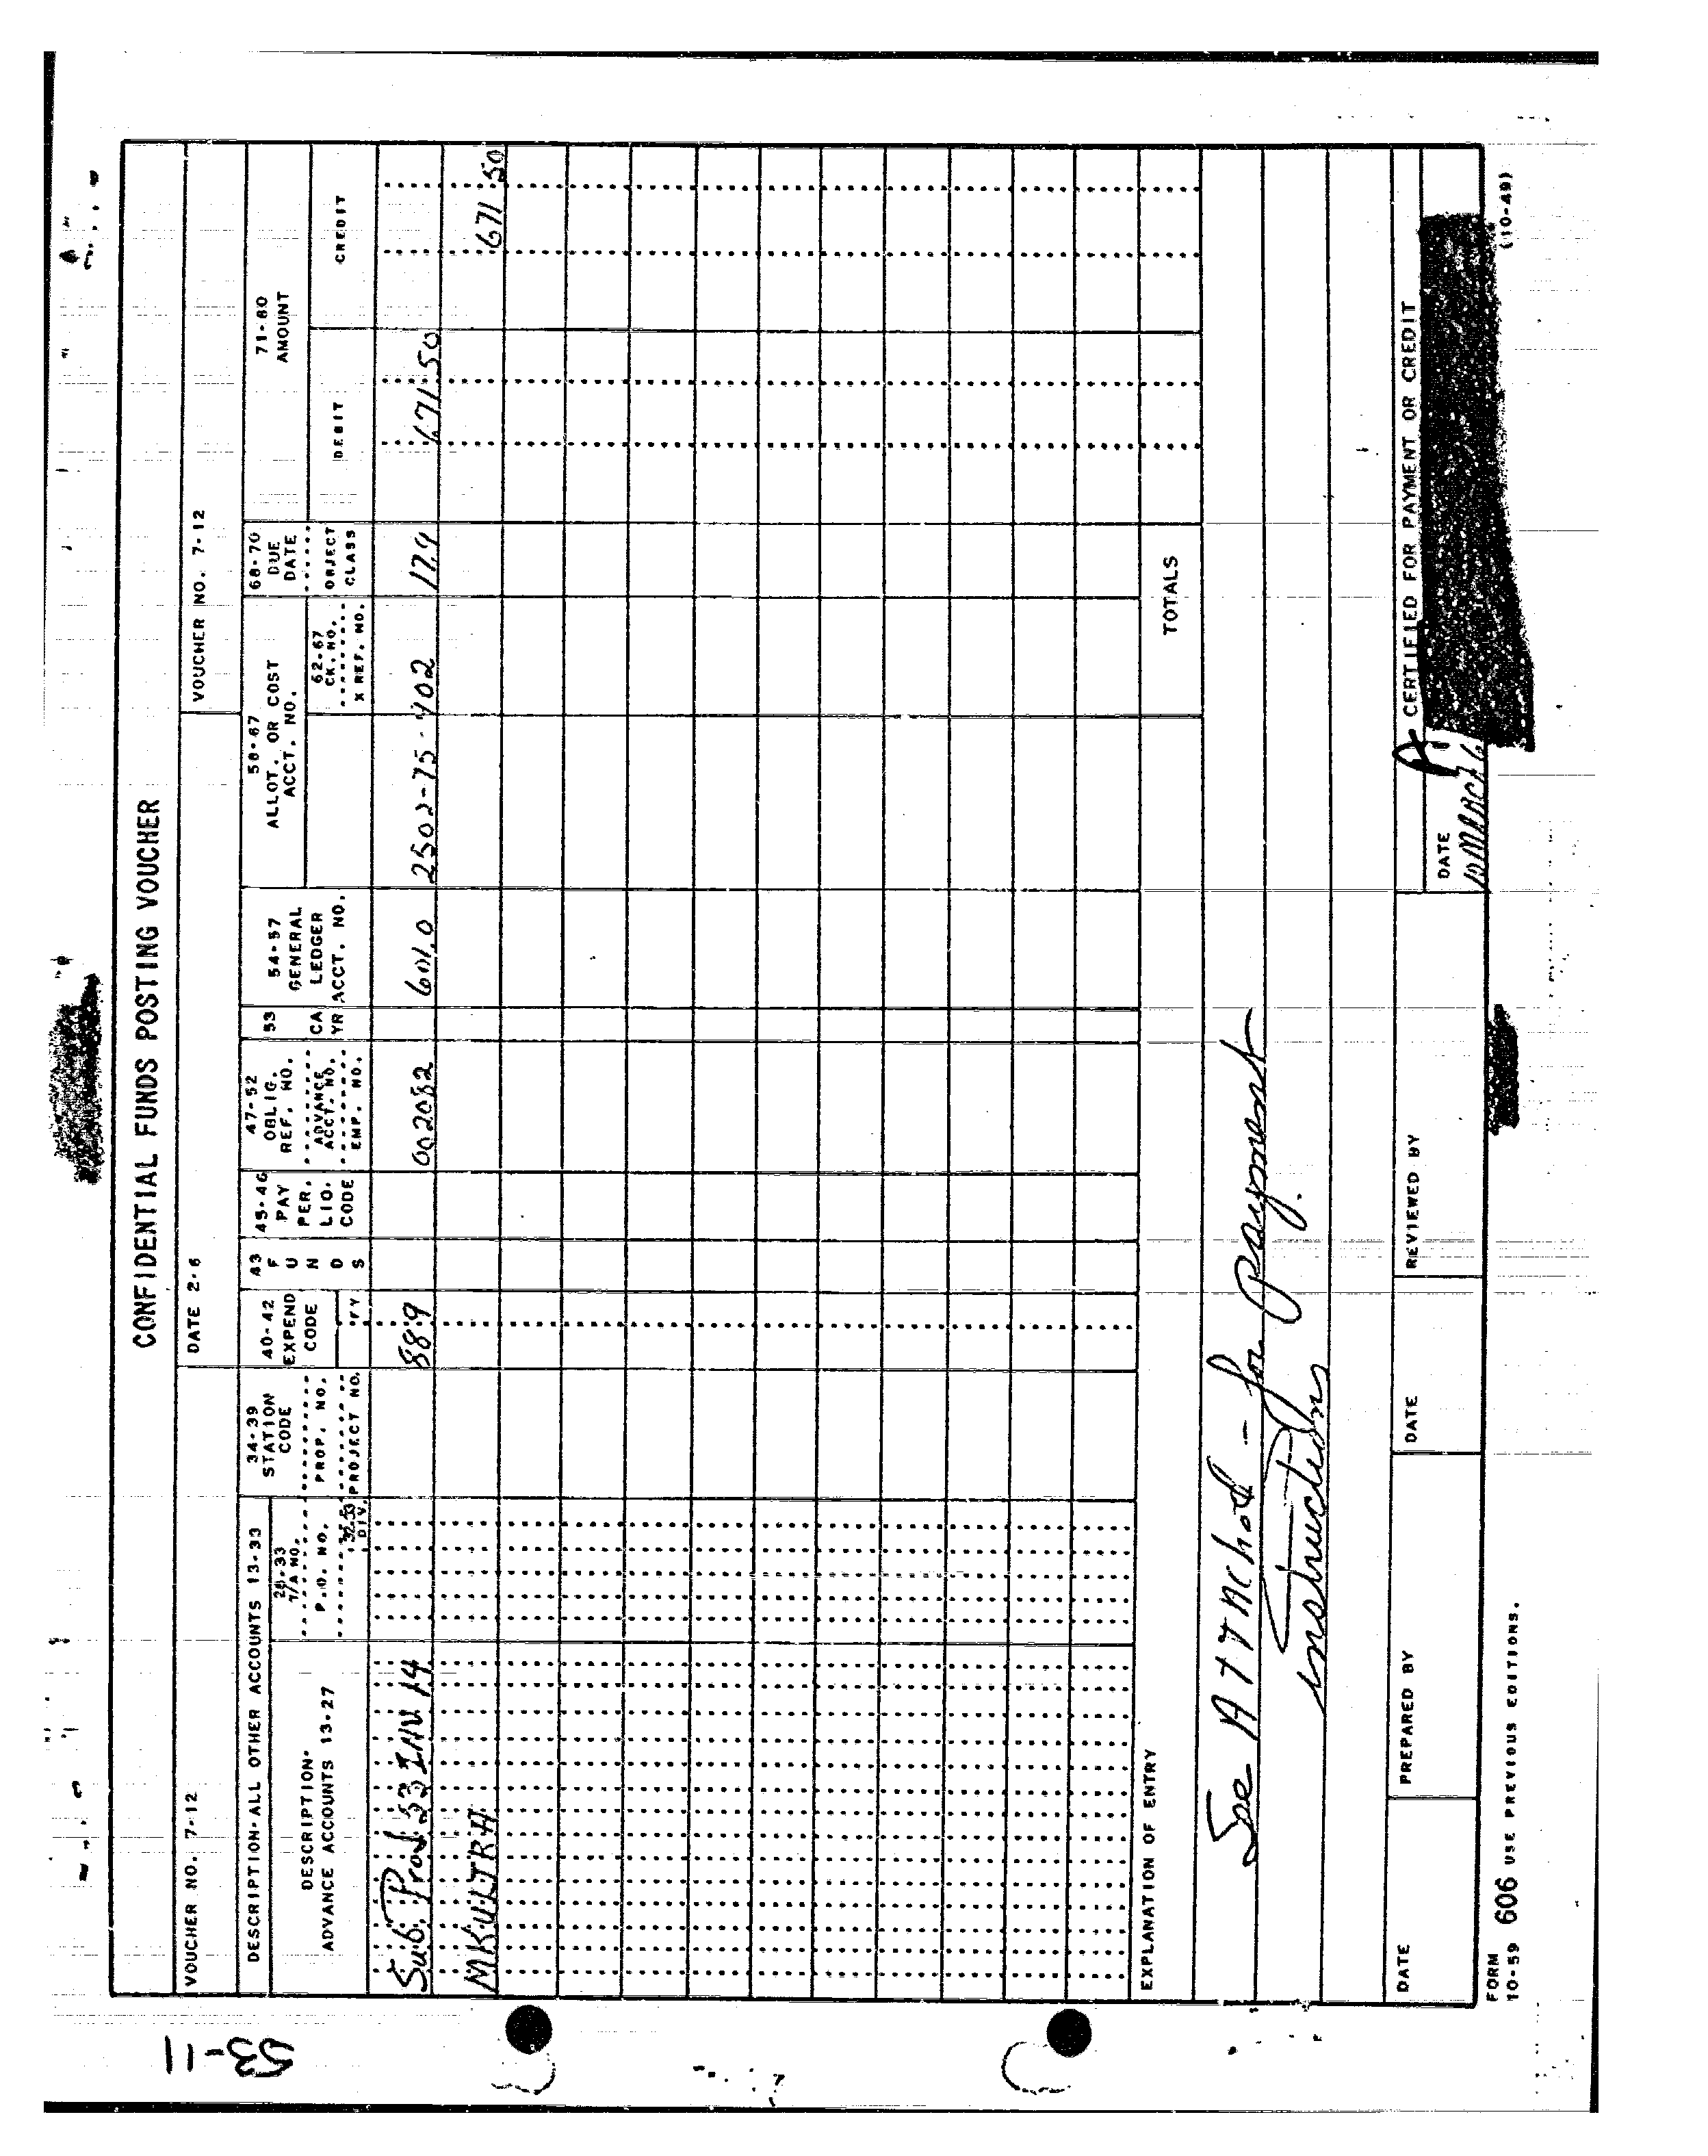 53-11
CONFIDENTIAL FUNDS POSTING VOUCHER
VOUCHER NO. 7-12 DATE 2-6 VOUCHER NO. 7-12
DESCRIPTION-ALL OTHER ACCOUNTS 13-33
DESCRIPTION-
ADVANCE ACCOUNTS 13-27
28-33
T/A NO.
P.O. NO.
32-33
DIV.
34-39
STATION
CODE
PROP. NO.
PROJECT NO.
40-42
EXPEND
CODE
FY
43
F
U
N
D
S
45-46
PAY
PER.
LIQ.
CODE
47-52
OBLIG.
REF. NO.
ADVANCE
ACCT. NO.
EMP. NO.
53
CA
YR
54-57
GENERAL
LEDGER
ACCT. NO.
58-67
ALLOT. OR COST
ACCT. NO.
62-67
CK. NO.
X REF. NO.
68-70
DUE
DATE
OBJECT
CLASS
71-80
AMOUNT
DEBIT
CREDIT
Sub. Proj 53 INV 14 889 002082 601.0 2502-75-902 179 671.50
MKULTRA 671 50
TOTALS
EXPLANATION OF ENTRY
See Attached - for payment
instructions
CERTIFIED FOR PAYMENT OR CREDIT
DATE PREPARED BY DATE REVIEWED BY DATE
FORM
10-59 606 USE PREVIOUS EDITIONS. (10-49)